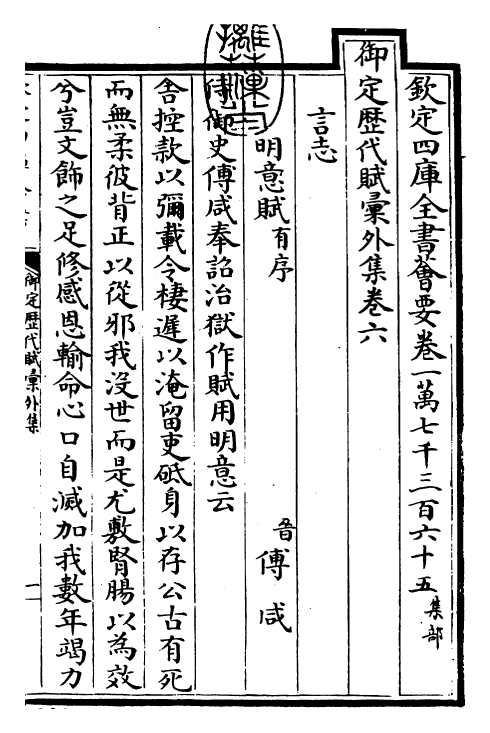 欽定四庫全書薈要卷一萬七千三百六十五 集部
御定歴代賦彚外集卷六
言志
明意賦 有序 晉 傅咸
侍御史傅咸奉詔治獄作賦用明意云
舎控款以彌載令棲遲以淹留吏砥身以存公古有死
而無柔彼背正以從邪我沒世而是尤敷腎腸以為效
兮豈文飾之足修感恩輸命心口自滅加我數年竭力
御定歴代賦彚外集
一